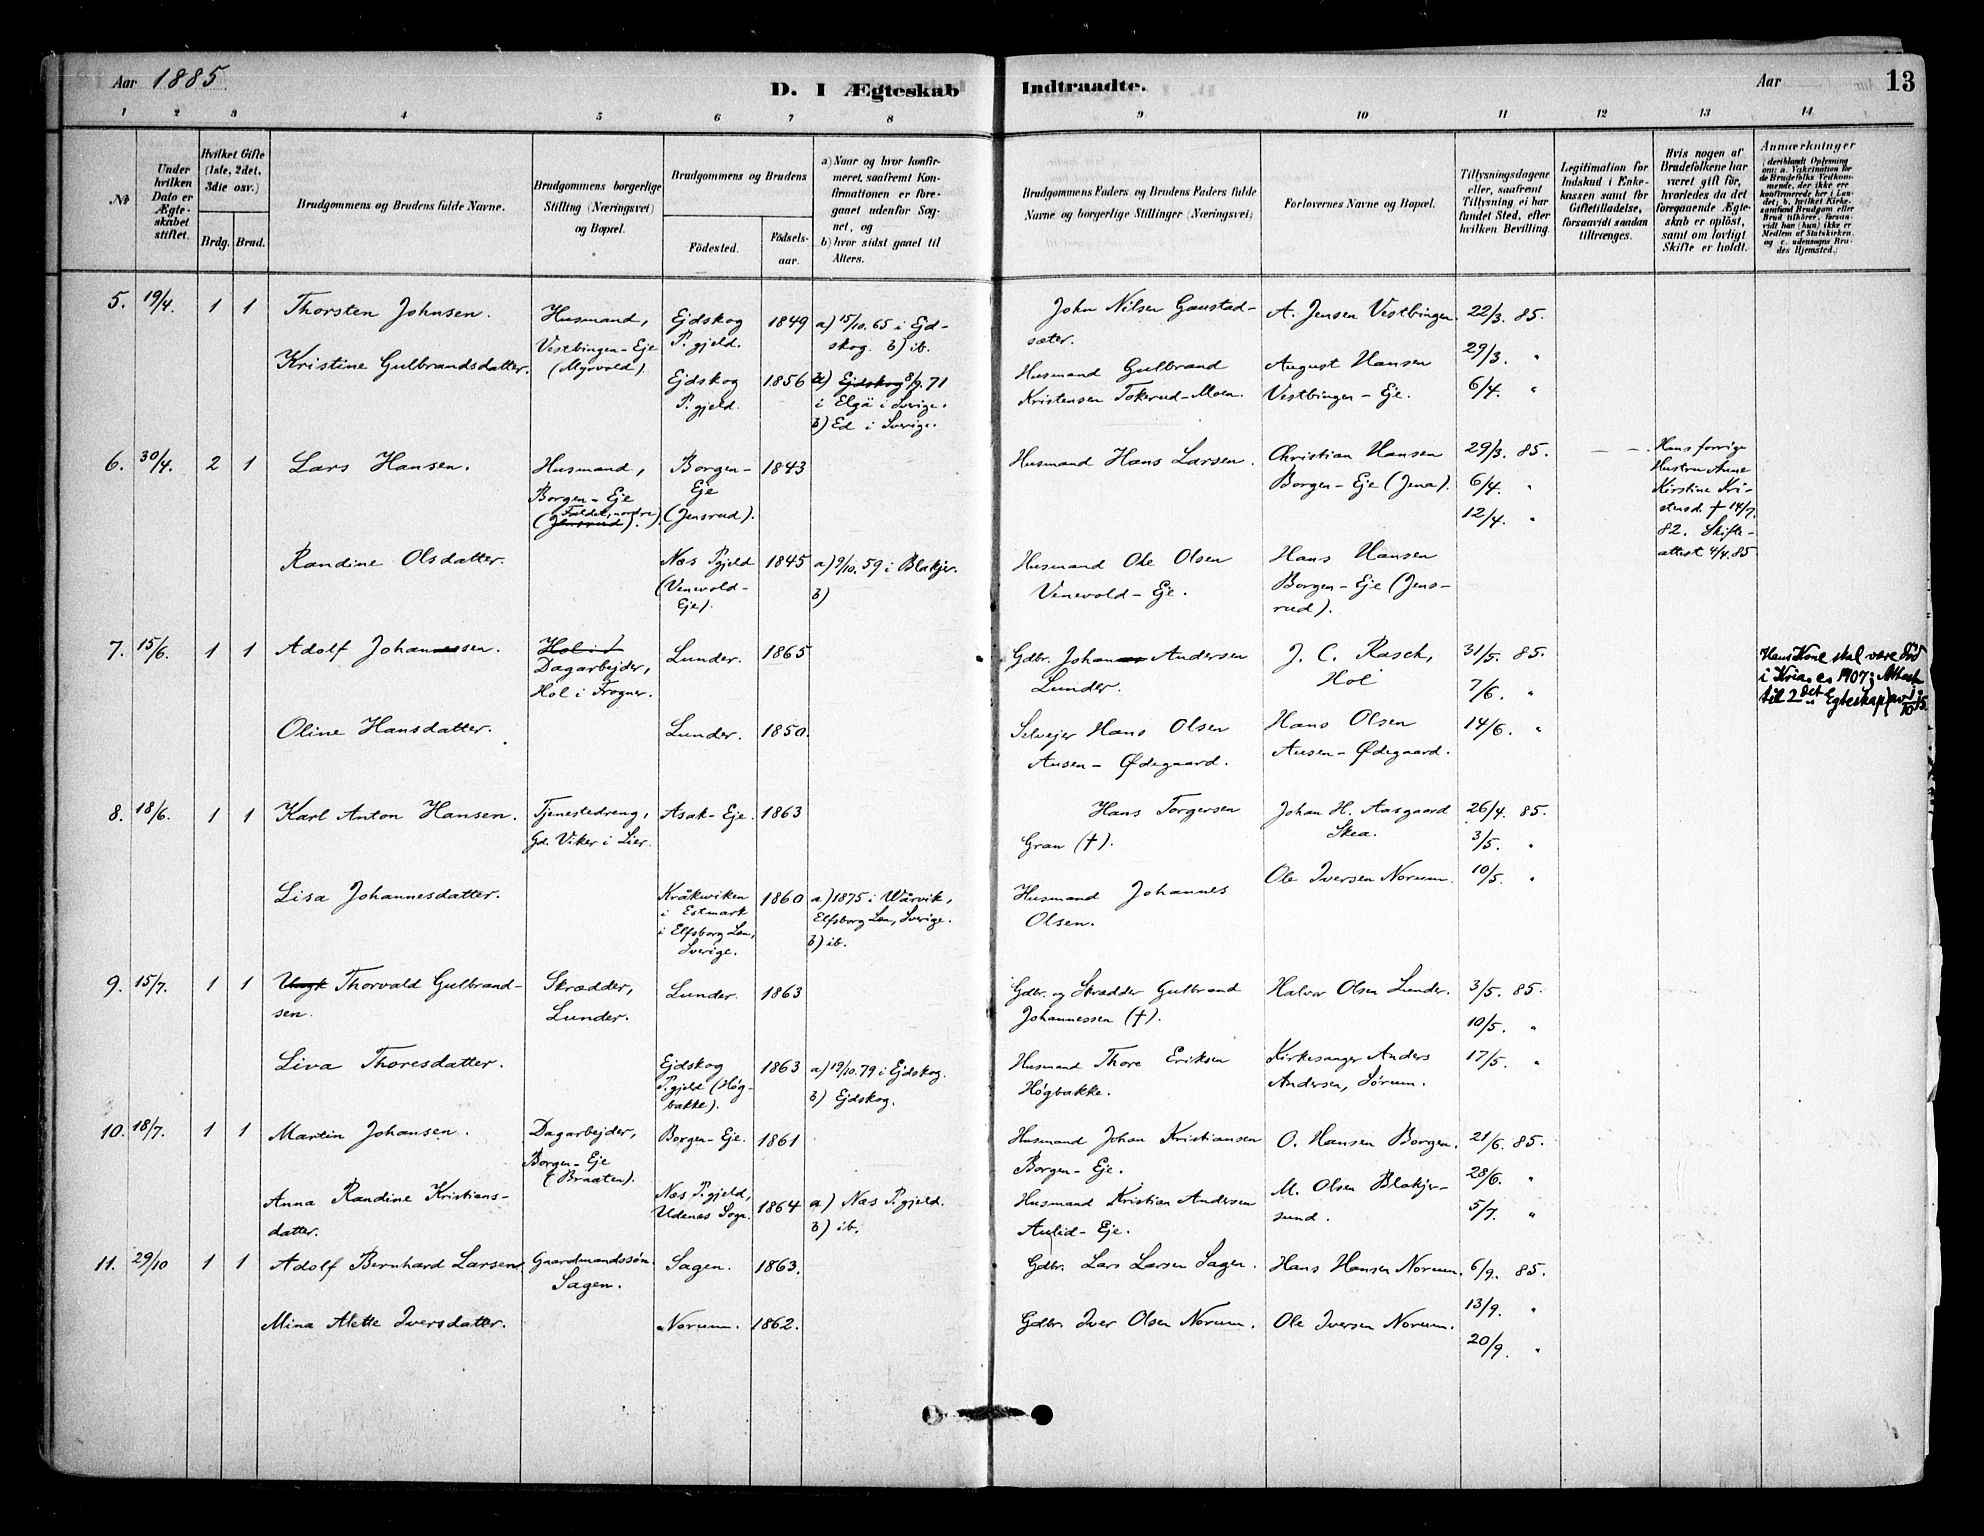 Aar 1885
D. I Ægteskab Indtraadte.
Aar
13
1 2 3 4 5 6 7 8 9 10 11 12 13 14
No
Under hvilken Dato er Ægteskabet stiftet.
Hvilket Gifte (1ste, 2det, 3die osv.)
Brdg. Brud.
Brudgommens og Brudens fulde Navne.
Brudgommens borgerlige Stilling (Næringsvei) og Bopæl.
Brudgommens og Brudens
Fødested.
Fødselsaar.
a) Naar og hvor konfirmeret, saafremt Konfirmationen er foregaaet udenfor Sognet, og
b) hvor sidst gaael til Alters.
Brudgommens Faders og Brudens Faders fulde Navne og borgerlige Stillinger (Næringsvei)
Forlovernes Navne og Bopæl.
Tillysningsdagene eller, saafremt Tillysning ei har fundet Sted, efter hvilken Bevilling.
Legitimation for Indskud i Enkekassen samt for Giftetilladelse, forsaavidt saadan tiltrænges.
Hvis nogen af Brudefolkene har været gift før, hvorledes da det foregaaende Ægteskab er opløst, samt om lovligt Skifte er holdt.
Anmærkninger
(deriblandt Oplysning om: a. Vakcination for de Brudefolks Vedkommende, der ikke ere konfirmerede her i Landet; b. hvilket Kirkesamfund Brudgom eller Brud tilhører, forsaavidt han (hun) ikke er Medlem af Statskirken, og c. udensogns Brudes Hjemsted.)
5. 19/4. 1 1 Thorsten Johnsen.
Husmand, Vestbingen-Eje (Myrvold).
Ejdskog P.gjeld. 1849
a) 15/10.65 i Ejdskog. b) ib.
John Nilsen Gaustadsæter.
A. Jensen Vestbingen.
22/3. 85.
29/3. "
6/4. "
Kristine Gulbrandsdatter.
Ejdskog P.gjeld. 1856
a) Ejdskog 8/9.71 i Elgå i Sverige.
b) Ed i Sverige.
Husmand Gulbrand Kristensen Tokerud-Moen.
August Hansen Vestbingen-Eje.
6. 30/4. 2 1 Lars Hansen.
Husmand, Borgen-Eje (Jensrud).
nordre
Borgen-Eje (Jensrud). 1843
Husmand Hans Larsen.
Christian Hansen Borgen-Eje (Jena).
29/3. 85.
6/4. "
12/4. "
Hans forrige Hustru Anne Kirstine Kristensd. † 14/7.82. Skifteattest 4/4.85
Randine Olsdatter.
Næs P.gjeld (Venevold-Eje). 1845
a) 9/10.59 i Blakjer.
b)
Husmand Ole Olsen Venevold-Eje.
Hans Hansen Borgen-Eje (Jensrud).
7. 15/6. 1 1 Adolf Johannessen.
Hol i
Dagarbejder, Hol i Frogner.
Lunder. 1865
Gdbr. Johannes Andersen Lunder.
J. C. Rasch, Hol
31/5. 85.
7/6. "
14/6. "
Hans Kone skal være död i Kria. ca 1907; Attest til 2det Egteskap
Oline Hansdatter.
Lunder. 1850.
Selvejer Hans Olsen Ausen-Ødegaard.
Hans Olsen Ausen-Ødegaard.
8. 18/6. 1 1 Karl Anton Hansen.
Tjenestedreng, Gd. Viker i Lier.
Asak-Eje. 1863
Hans Torgersen Gran (†).
Johan H. Aasgaard Skea.
26/4. 85.
3/5. "
10/5. "
Lisa Johannesdatter.
Kråkviken i Estmark i Elfsborg Len, Sverige. 1860
a) 1875 i Wårvik, Elfsborg Len, Sverige.
b) ib.
Husmand Johannes Olsen.
Ole Iversen Norum.
9. 15/7. 1 1 Thorvald Gulbrandsen.
Skrædder, Lunder.
Lunder. 1863
Gdbr. og Skrædder Gulbrand Johannessen (†).
Halvor Olsen Lunder.
3/5. 85.
10/5. "
17/5. "
Liva Thoresdatter.
Ejdskog P.gjeld (Høgbakke). 1863
a) 19/10.79 i Ejdskog.
b) Ejdskog.
Husmand Thore Eriksen Høgbakke.
Kirkesanger Anders Andersen, Sørum.
10. 18/7. 1 1 Martin Johansen.
Dagarbejder, Borgen-Eje (Braaten).
Borgen-Eje. 1861
Husmand Johan Kristiansen Borgen-Eje.
O. Hansen Borgen.
21/6. 85.
28/6. "
5/7. "
Anna Randine Kristiansdatter.
Næs P.gjeld, Udenæs Sogn. 1864
a) Næs P.gjeld.
b) ib.
Husmand Kristian Andersen Aulid-Eje.
M. Olsen Blakjersund.
11. 29/10 1 1 Adolf Bernhard Larsen.
Gaardmandssøn Sagen.
Sagen. 1863.
Gdbr. Lars Larsen Sagen.
Hans Hansen Norum.
6/9. 85.
13/9. "
20/9. "
Mina Alette Iversdatter.
Norum. 1862.
Gdbr. Iver Olsen Norum.
Ole Iversen Norum.